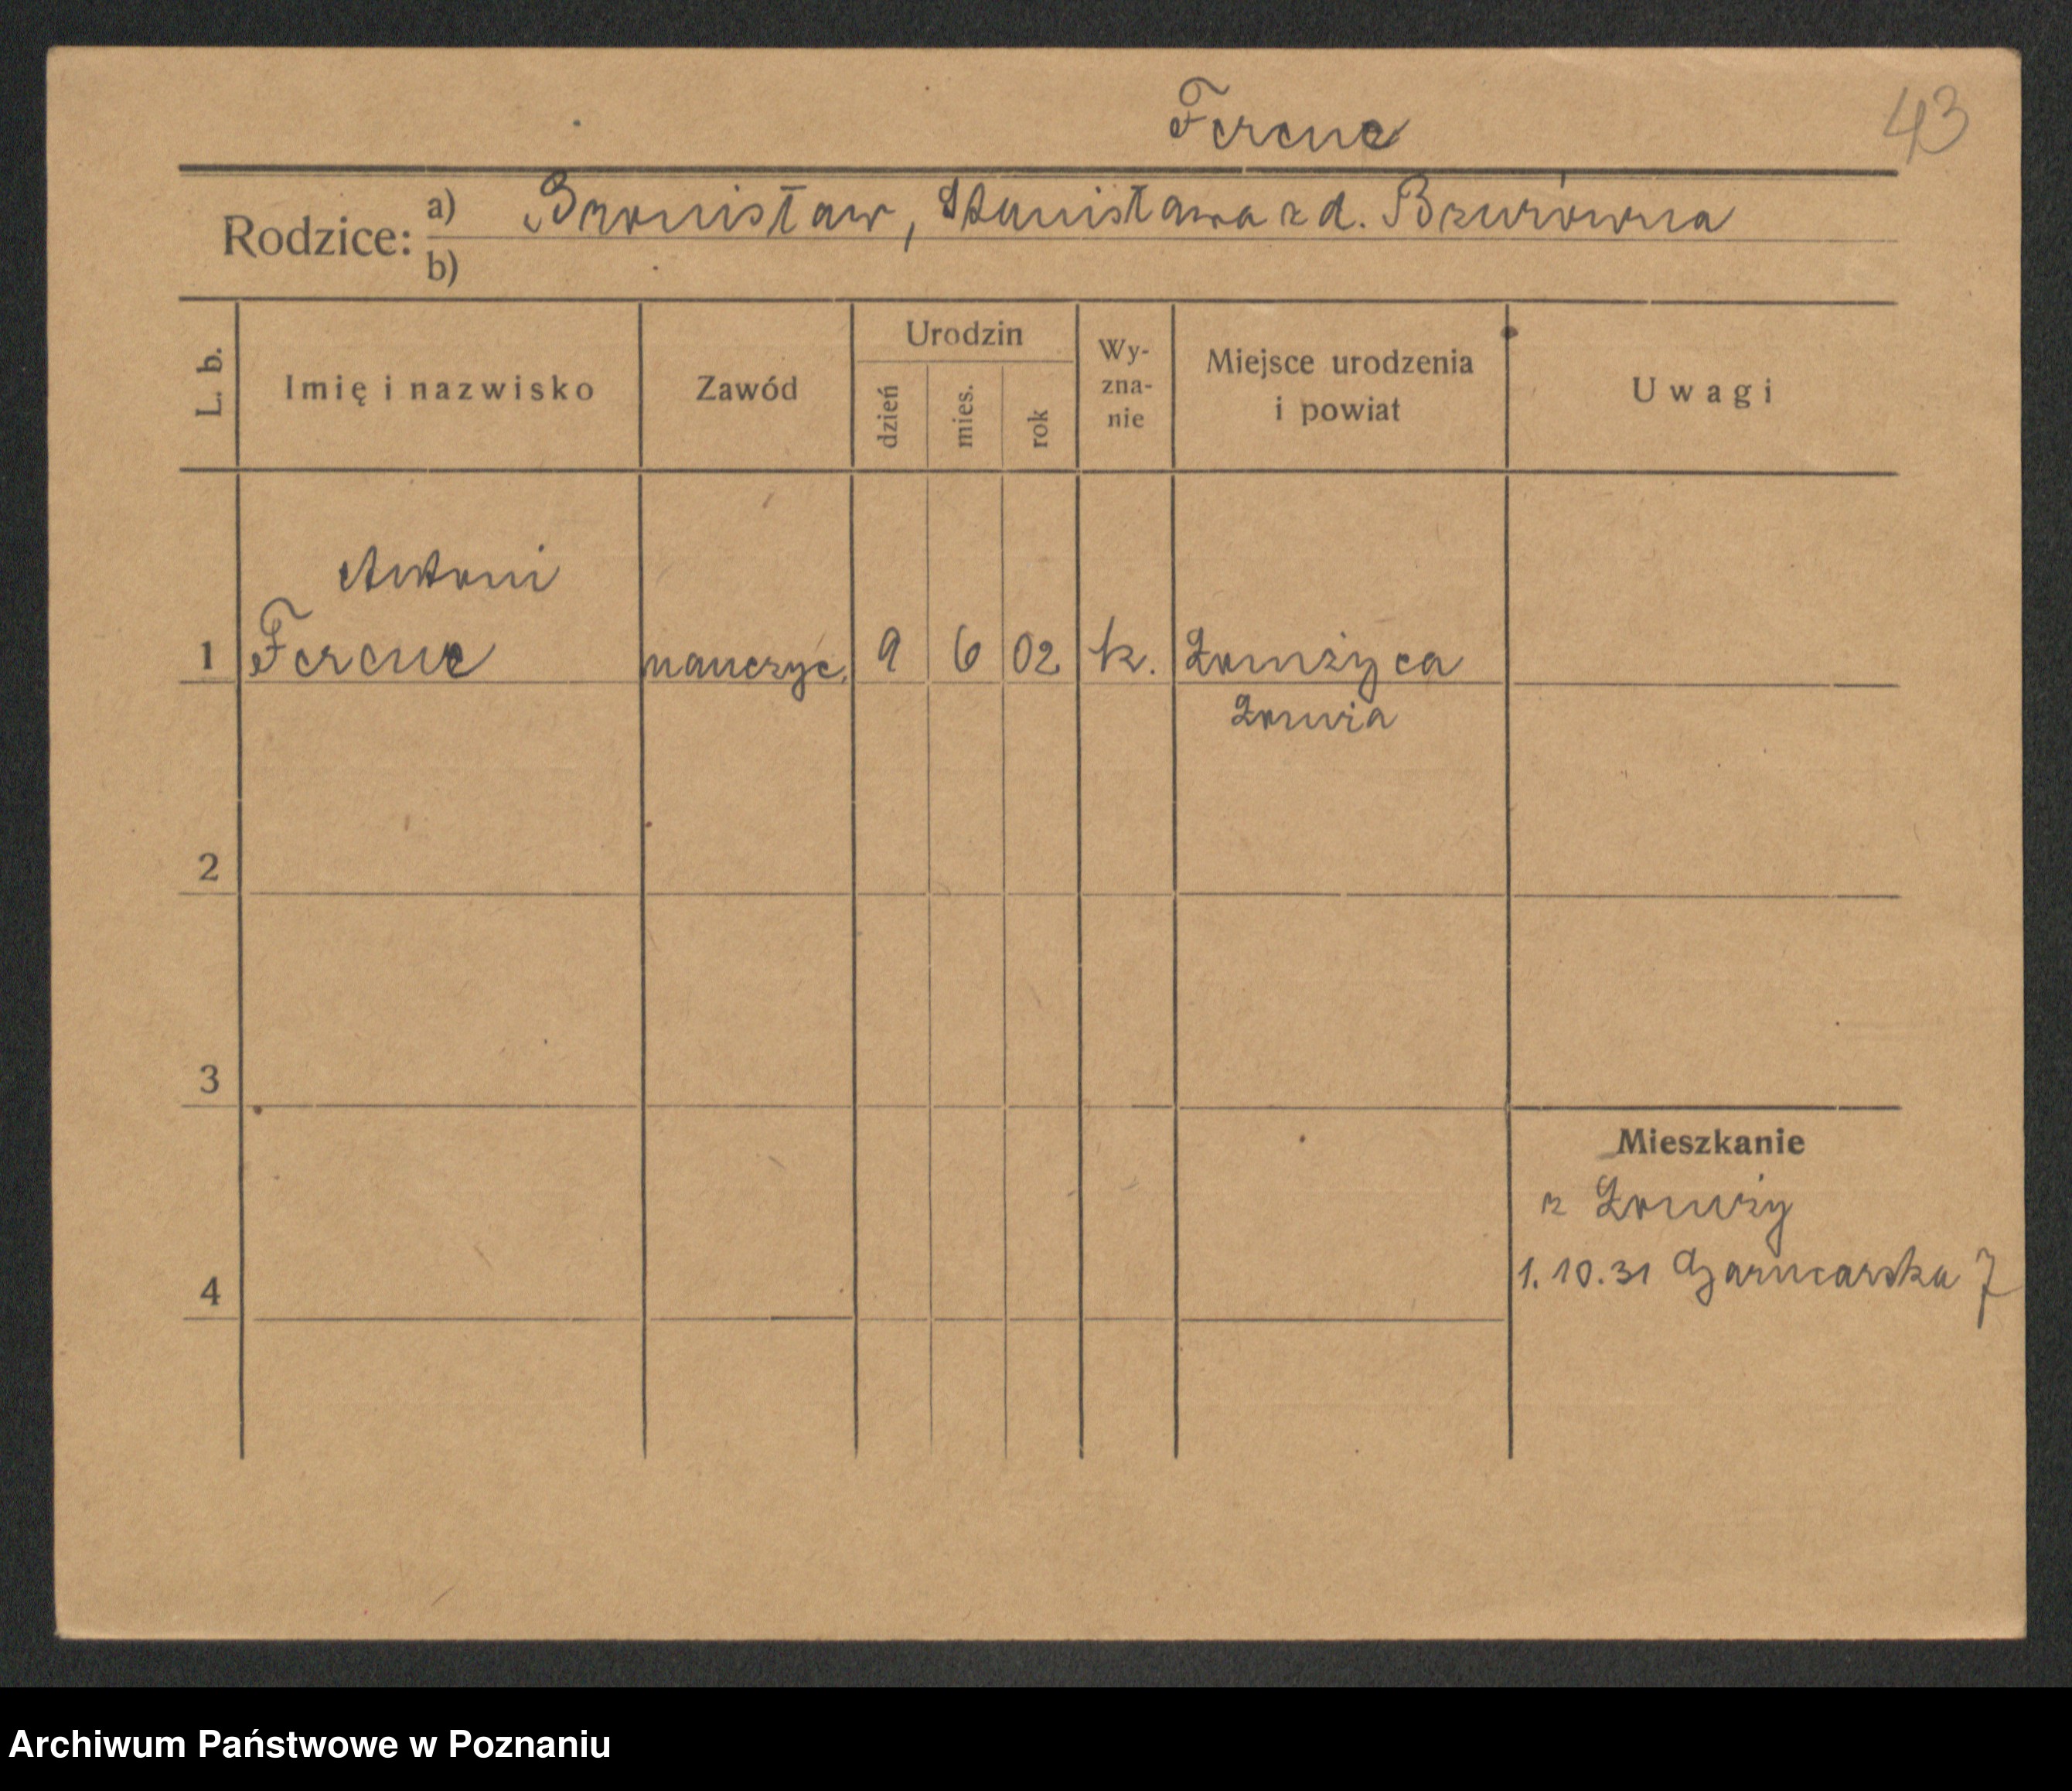 Ferenc
43
Rodzice: a) Bronisław, Stanisława z d. Bzurówna
b)
L. b.
Imię i nazwisko
Zawód
Urodzin
dzień
mies.
rok
Wy-
zna-
nie
Miejsce urodzenia
i powiat
Uwagi
Antoni
1 Ferenc nauczyc. 9 6 02 k. Łomżyca
Łomża
2
3
Mieszkanie
z Łomży
1.10.31 Garncarska 7
4
Archiwum Państwowe w Poznaniu